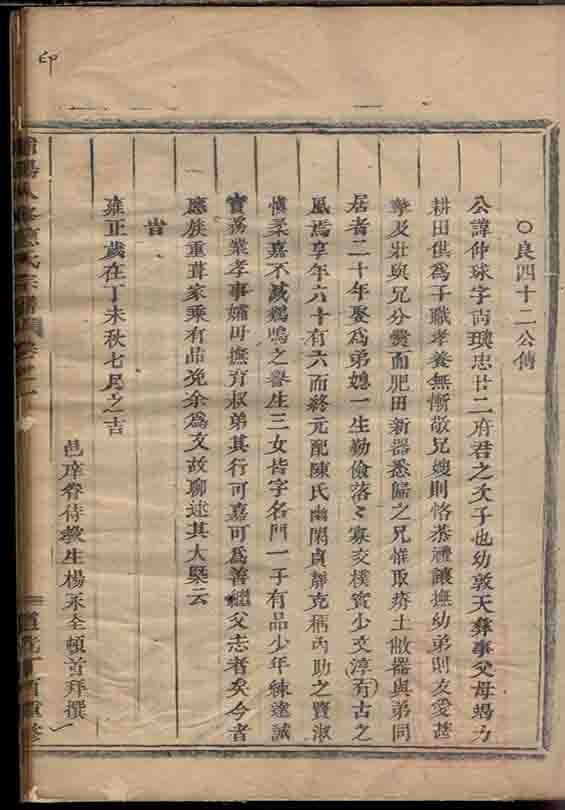 印
○良四十二公傳
公諱仲球字尚璵忠廿二府君之次子也幼敦天彝事父母竭力
耕田供爲子職孝養無慚敬兄嫂則恪恭禮讓撫幼弟則友愛甚
摯及壯與兄分爨而肥田新器悉歸之兄惟取瘠土敝器與弟同
居者二十年娶爲弟媳一生勤儉落々寡交樸實少文淳有古之
風焉享年六十有六而終元配陳氏幽閑貞靜克稱內助之賢淑
慎柔嘉不減鷄鳴之譽生三女皆字名門一子有品少年練達誠
實蕩業孝事孀母撫育叔弟其行可嘉可爲善繼父志者矣今者
應族重葺家乘有品浼余爲文故聊述其大槩云
旹
雍正歲在丁未秋七月之吉
邑庠眷侍教生楊 全頓首拜撰
氏宗譜 卷之一
道光丁酉重修